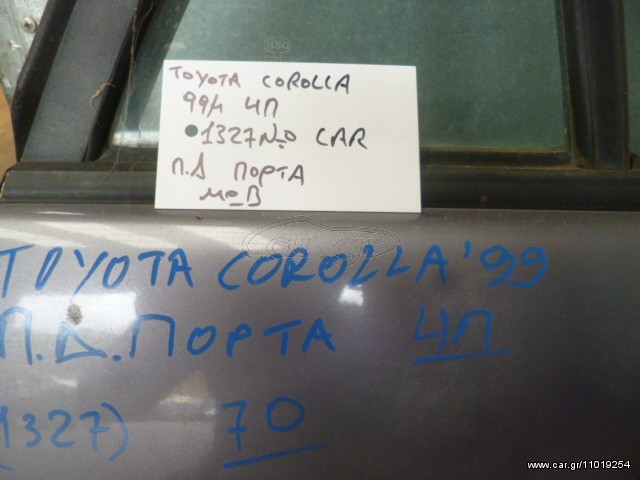 TOYOTA COROLLA
99μ 4Π
1327 No CAR
Π.Δ ΠΟΡΤΑ
ΜΡΒ
TOYOTA COROLLA '99
Π.Δ. ΠΟΡΤΑ 4Π
(1327) 70
www.car.gr/11019254